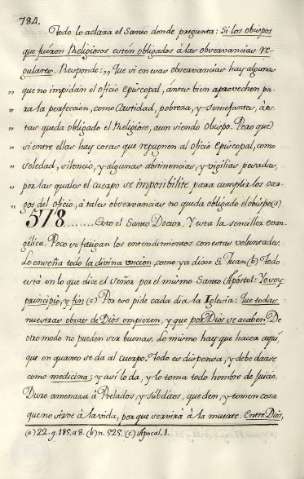 784.
Todo lo aclara el Santo donde pregunta: Si los obispos
que fueron Religiosos estén obligados á las observancias re-
gulares. Responde: „ Que si en esas observancias hay alguna
„ que no impidan el oficio episcopal, antes bien aprovechen pa-
„ ra la perfección, como Castidad, pobreza, y semejantes, á es-
„ tas queda obligado el Religioso, aun siendo obispo. Pero que
„ si entre ellas hay cosas que repugnen al oficio episcopal, como
„ soledad, silencio, y algunas abstinencias, y vigilias pesadas,
„ por las quales el cuerpo se imposibilite para cumplir los car-
„ gos del oficio, á tales observancias no queda obligado el obispo (a)
578 ........ Esto el Santo Doctor. Y esta la sencillez evan-
gélica. Poco se fatigan los entendimientos con estas voluntades.
Lo enseña todo la divina uncion, como ya dixo S. Juan (b) Todo
está en lo que dice el Señor por el mismo Santo Apóstol: Yo soy
principio, y fin (c) Por eso pide cada dia la Iglesia: Que todas
nuestras obras de Dios empiecen, y que por Dios se acaben. De
otro modo no pueden ser buenas. Lo mismo hay que hacer aquí
que en quanto se da al cuerpo. Todo se dispensa, y debe darse
como medicina; y así lo da, y lo toma todo hombre de juicio.
Dios amenaza á Prelados, y subditos, que den, y tomen cosa
que no sirve á la vida, porque servirá á la muerte. Entre Dios,
(a) 22. q. 185. a 8. (b) n. 525. (c) Apocal. 1.